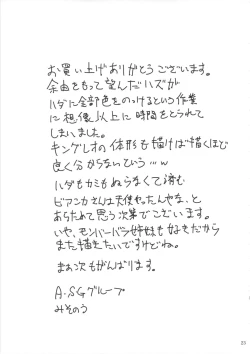 お買い上げありがとうございます。
余白をもって望んだハズが
ハダに全部色をのっけるという作業
に想像以上に時間をとられて
しまいました。
キングレオの体形も描けば描くほど
良く分からないていう…w
ハダもカミもぬらなくて済む
ビアンカさんは天使やったんやな、と
あらためて思う次第でございます。
いや、モンバーバラ姉妹も好きだから
また描きたいですけどね。
まぁ次もがんばります。
A・SGグループ
みそのう
25